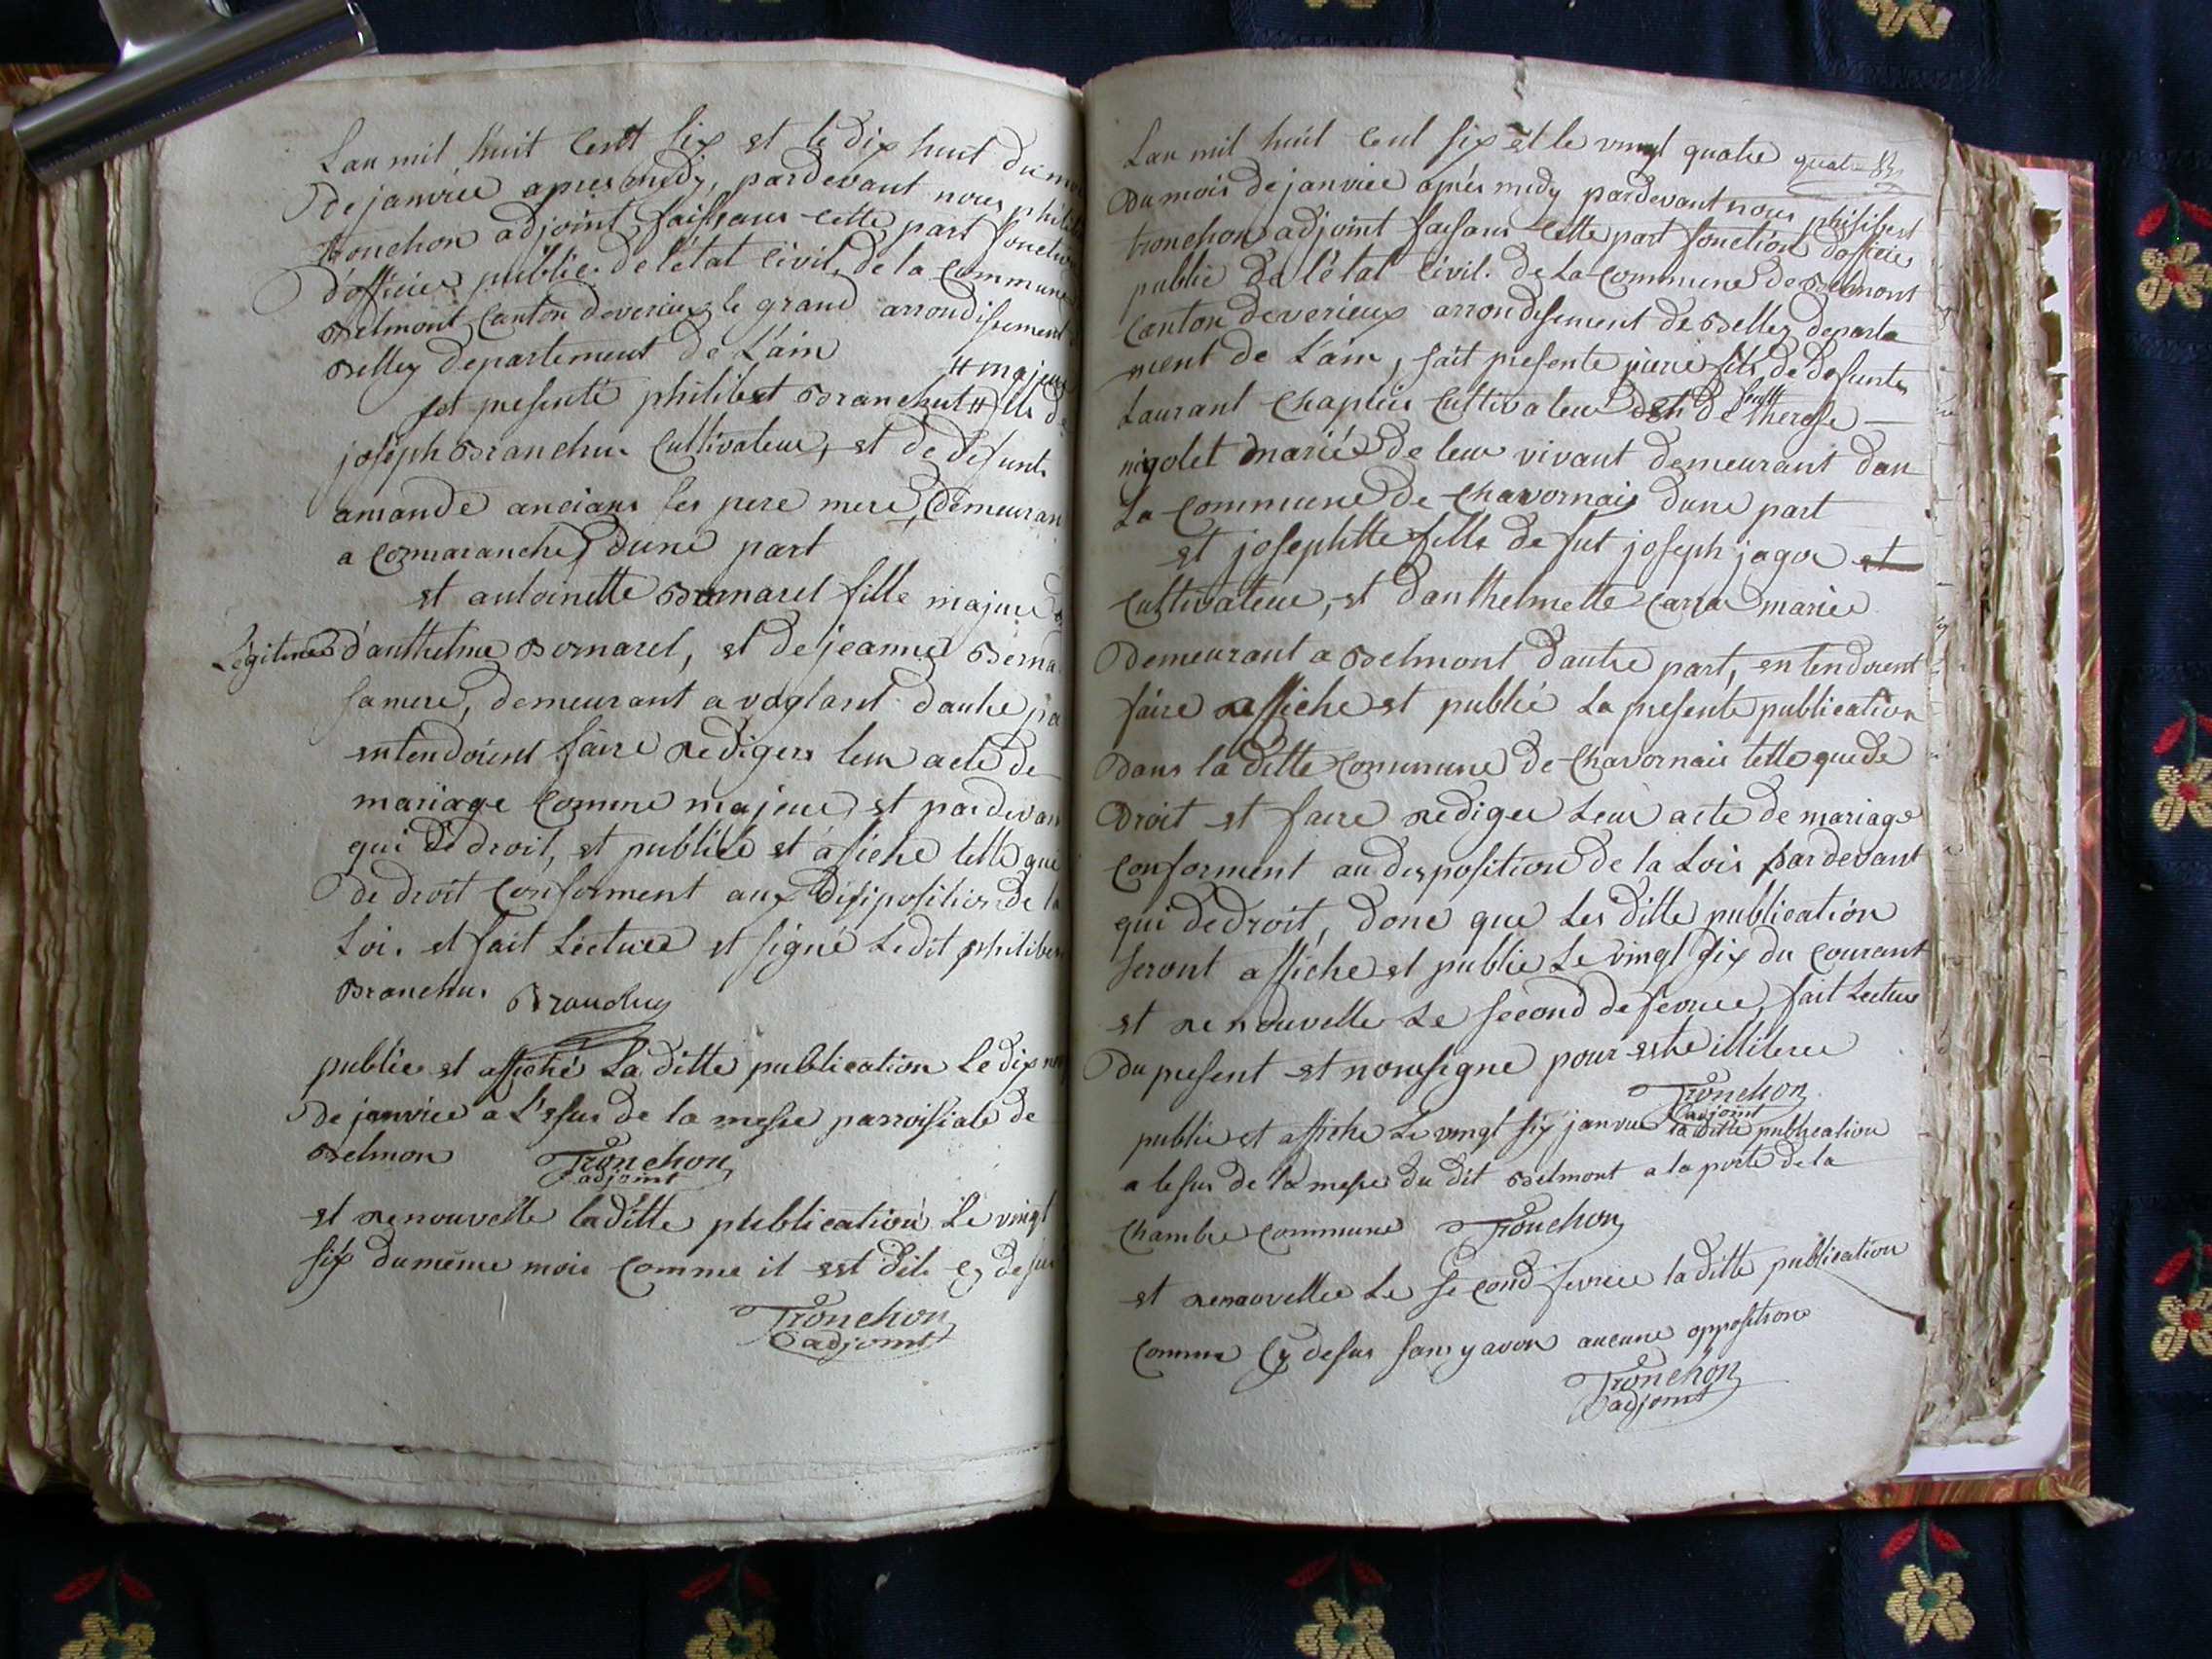 Lan mil huit Cent six et le dix huit du
de janvier apres midy, pardevant nous
tronchon adjoint faissans cette part
d'officier public de l'état Civil de la Commune
Belmont Canton de verieux le grand arrondissement
Belley departement de L'ain
# majeur
set presenté philibert Branchut # fils de
joseph Branchu Cultivateur, et de defunte
amande ancians ses pere mere, demeuran
a Cormaranche dune part
et antoinette Bornarel fille majeure
Légitime d'anthelme Bornarel, et de jeanne
samere, demeurant a voglant dautre
entendoient faire redigers leur acte de
mariage Comme majeur, et pardevan
qui de droit, et publiée et afiche telle que
de droit Conforment aux disposition de la
Loi. et fait Lecture et signé Le dit philiber
Branchus Branchuy
publié et affiché La ditte publication Le dix
de janvier a L'esus de la messe parroissiale de
Belmon Tronchon
adjoint
et renouvelle la ditte publication Le vingt
six du même mois Comme il est dit Cy desus
Tronchon
adjoint
Lan mil huit Cent six et le vingt quatre quatre
Du mois de janvier aprés midy pardevant nous philibert
tronchon adjoint faisans cette part fonction d'officier
public de l'état Civil. de La Commune de Belmont
Canton de verieux arrondisement de Belley departe
ment de L'ain, sait presente pierre fils de defunte
Laurant Chapuis Cultivateur de feutt therese
nigolet marié de leur vivant demeurant dan
La Commune de Chavornais dune part
et josephtte fille de fut joseph jagou et
Cultivateur, et danthelmette marié
Demeurant a Belmont d'autre part, entendoient
fáire affiche et publié La presente publication
Dans la ditte Commune de Chavornais telle que de
Droit et faire rediger Leur acte de mariage
Conforment au disposition de la Lois pardevant
qui de droit, donc que Les ditte publication
seront affiche et publie Le vingt six du Courant
et renouvelle Le second de fevrier, fait Lecture
Du present et nonsigne pour estre illiteree
Tronchon
adjoint
publie et affiche Le vingt six janvier la ditte publication
a lesus de la messe du dit Belmont a la porte de la
Chambre Commune Tronchon
et renouvellee Le second fevrier la ditte publication
Comme Cy desus sans y avoir aucune opposition
Tronchon
adjoint